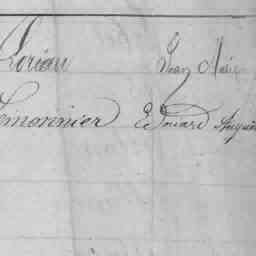 Lorian Jean Marie
Lemonnier Edouard Auguste